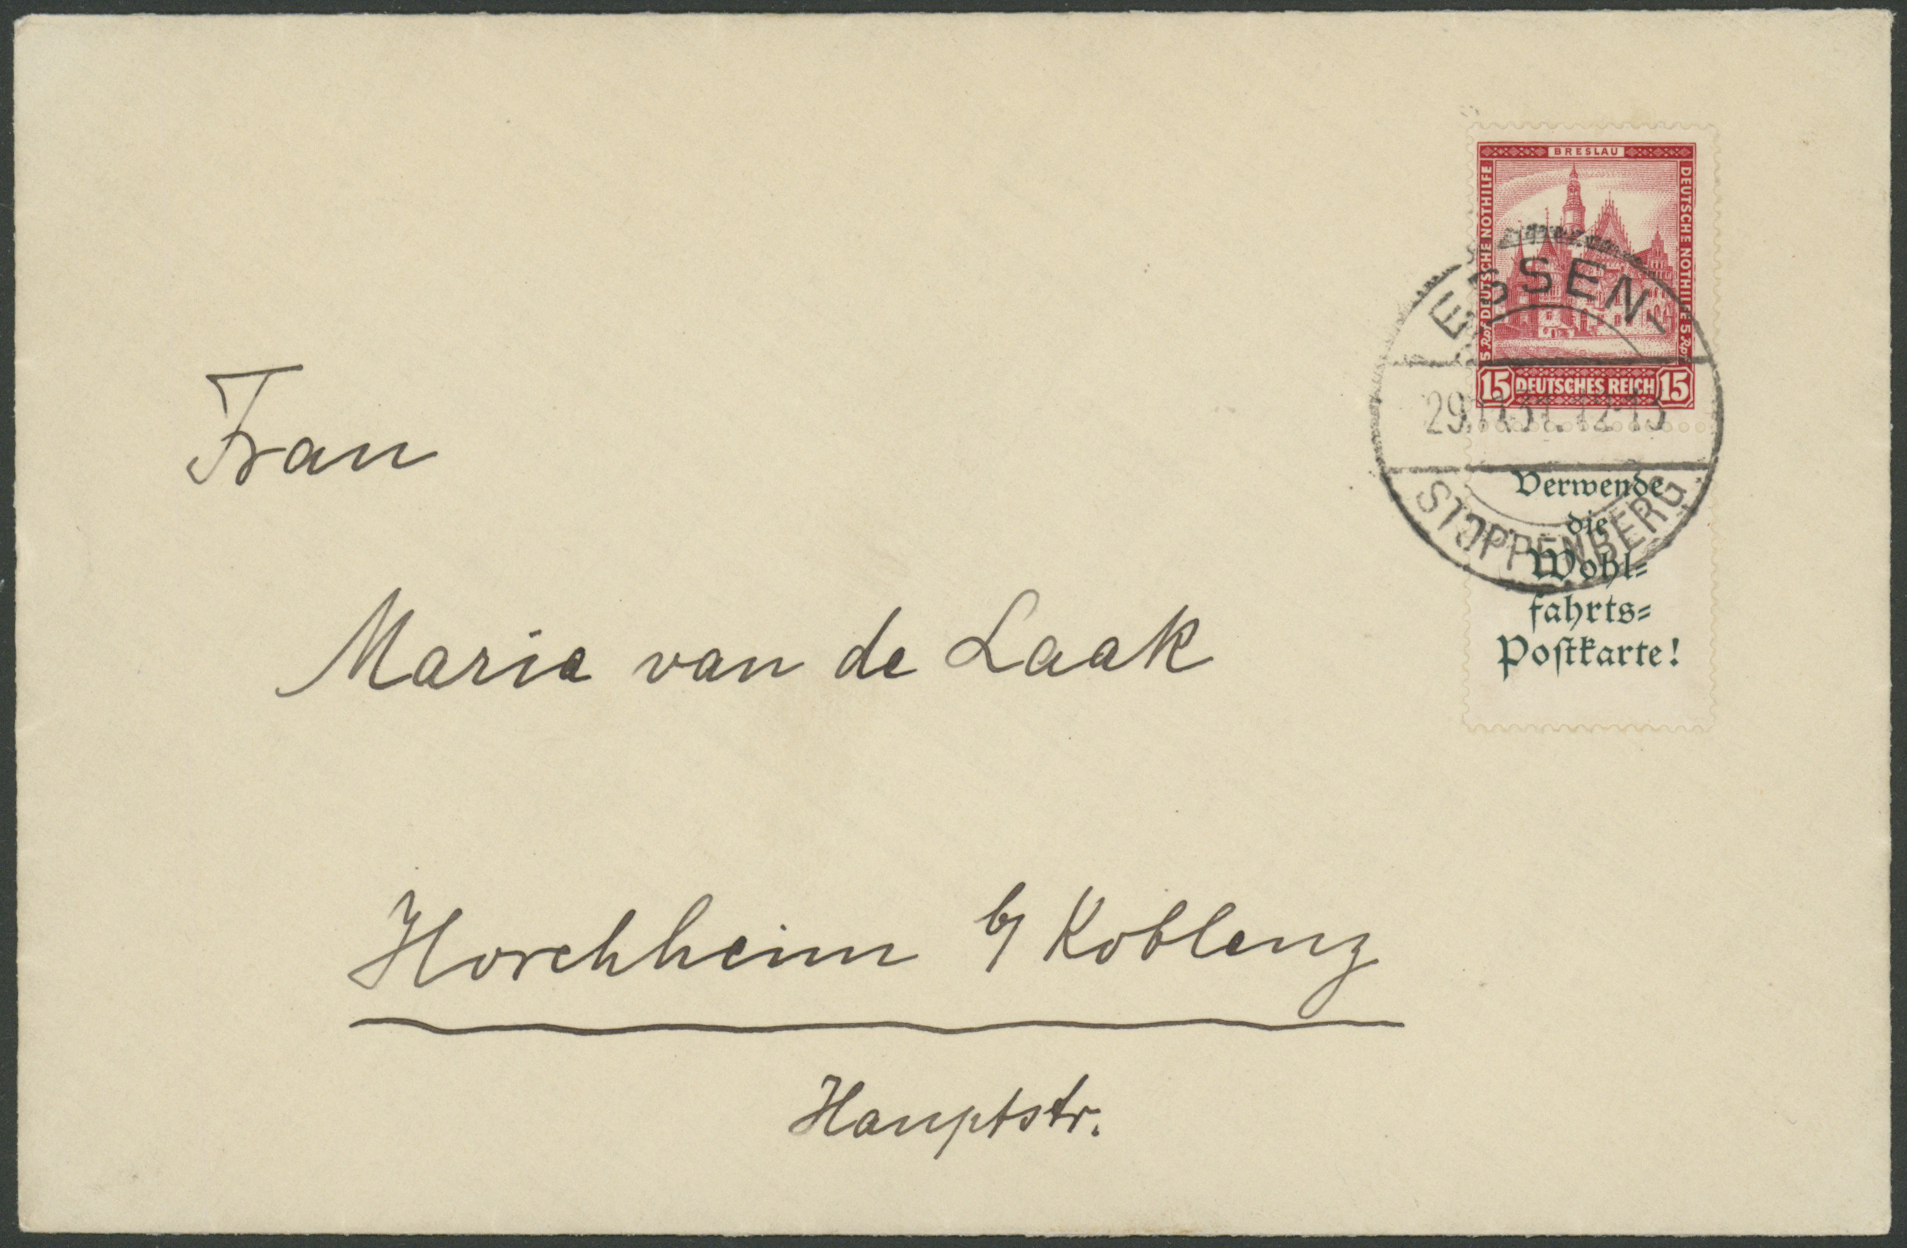 BRESLAU
DEUTSCHE NOTHILFE
DEUTSCHE NOTHILFE
5 Rpf
5 Rpf
15 DEUTSCHES REICH 15
ESSEN-
STOPPENBERG
Verwende
die
Wohl-
fahrts-
Postkarte!
Frau
Maria van de Laak
Horchheim b/ Koblenz
Hauptstr.